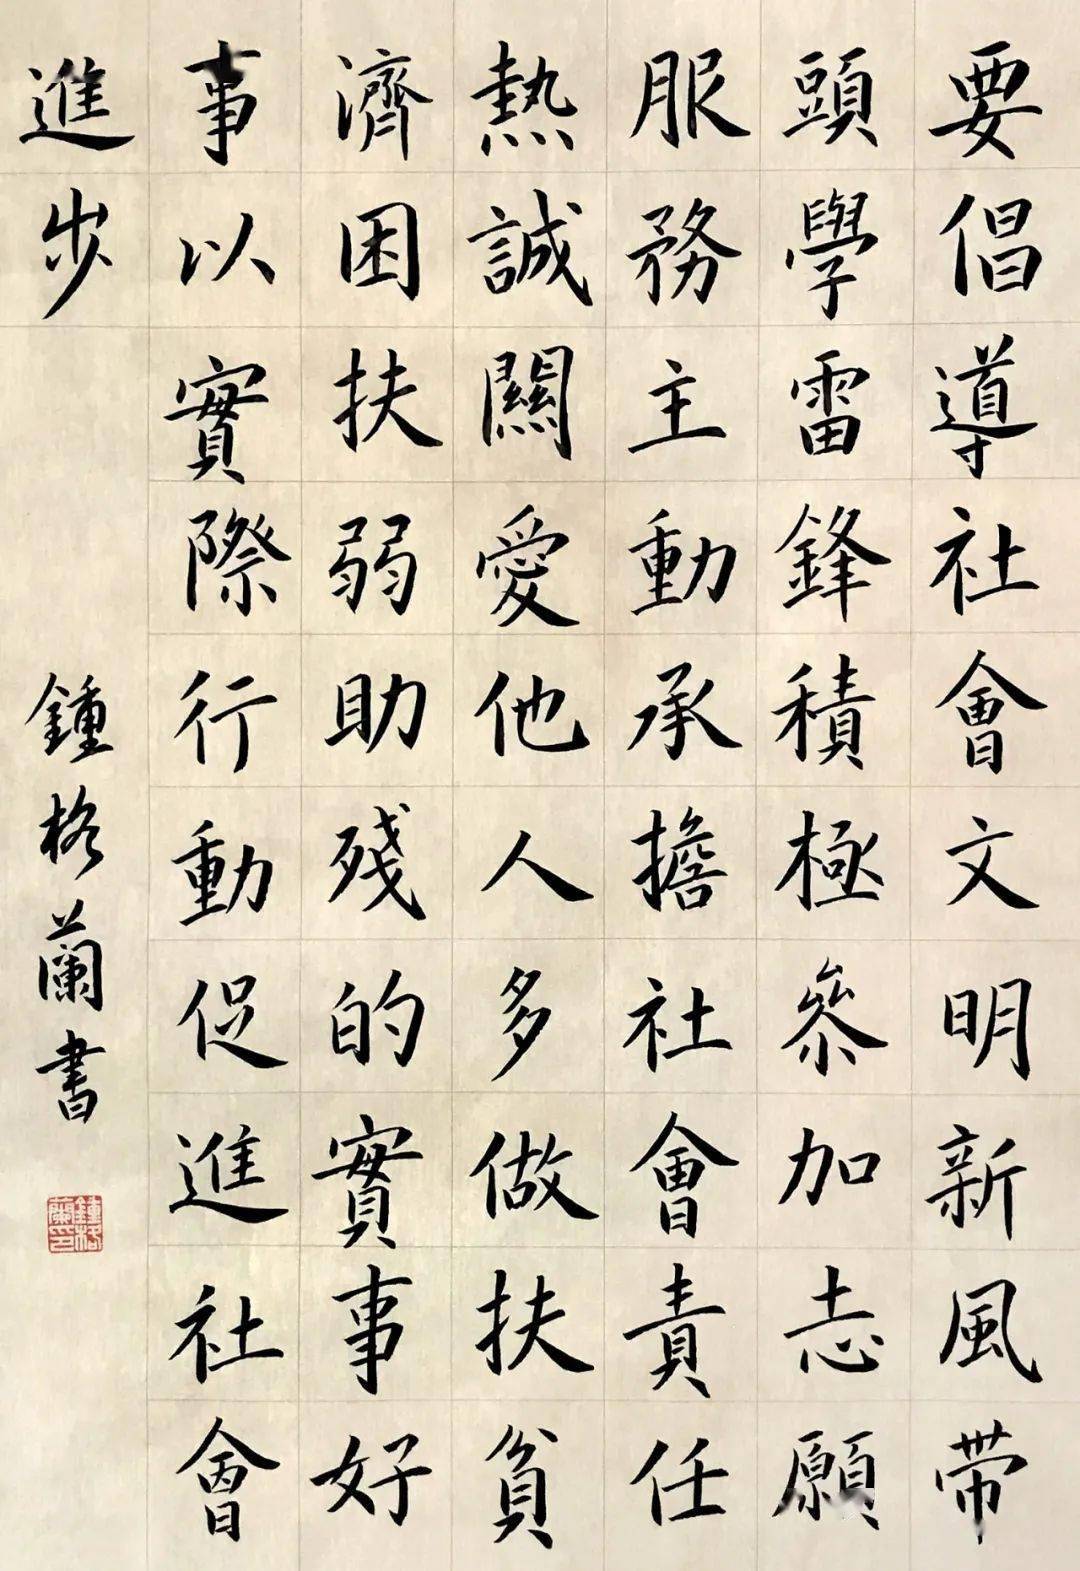 要倡導社會文明新風带
頭學雷鋒積極參加志願
服務主動承擔社會責任
熱誠關愛他人多做扶貧
濟困扶弱助殘的實事好
事以實際行動促進社會
進步
鍾格蘭書
鍾格蘭印